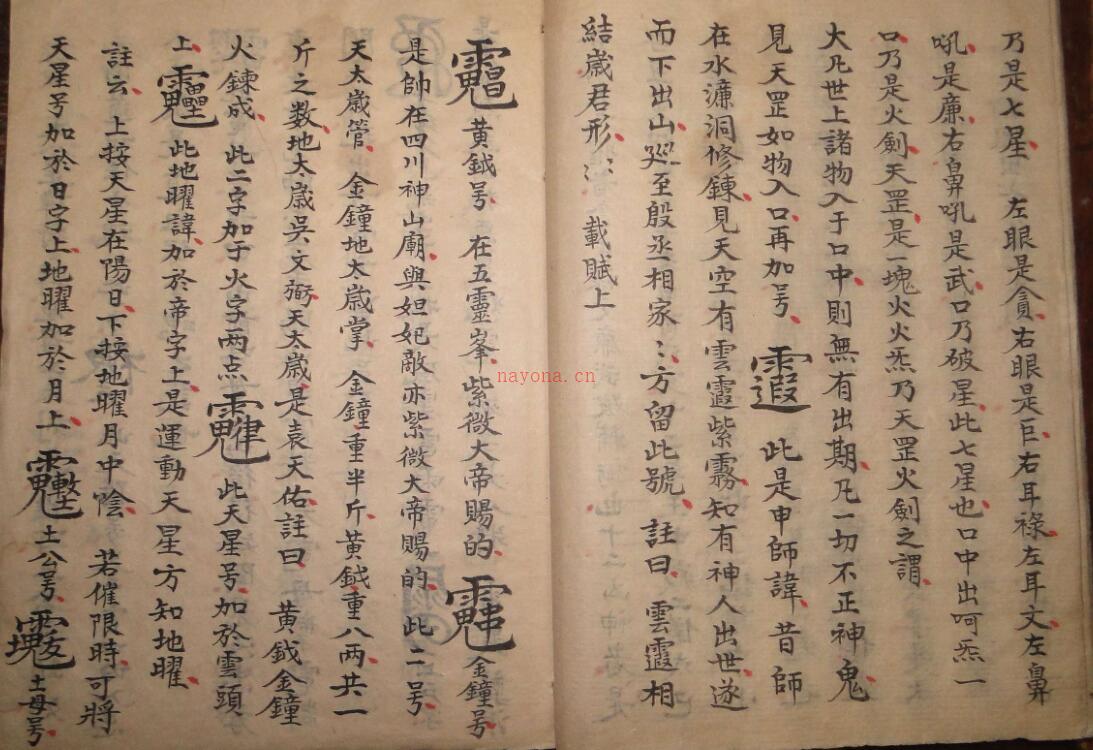 乃是七星 左眼是貪右眼是巨右耳祿左耳文左鼻
吼是廉右鼻吼是武口乃破星此七星也口中出呵炁一
口乃是火劍天罡是一塊火火炁乃天罡火劍之謂
大凡世上諸物入于口中則無有出期凡一切不正神鬼
見天罡如物入口再加号 此是申師諱昔師
在水濂洞修鍊見天空有雲霞紫霧知有神人出世遂
而下出山廵至殷丞相家〻方留此號 註曰 雲霞相
結歲君形〻 載賦上
黄鉞号 在五靈峯紫微大帝賜的 金鐘号
是帥在四川神山廟與妲妃敵亦紫微大帝賜的此二号
天太歲管 金鐘地太歲掌 金鐘重半斤黄鉞重八两共一
斤之数地太歲吳文天太歲是袁天佑註曰 黄鉞金鐘
火鍊成 此二字加于火字两点 此天星号加於雲頭
上 此地曜諱加於帝字上是運動天星方知地曜
註云 上按天星在陽日下按地曜月中陰 若催限時可將
天星号加於日字上地曜加於月上 土公号 土母号
nayona.cn